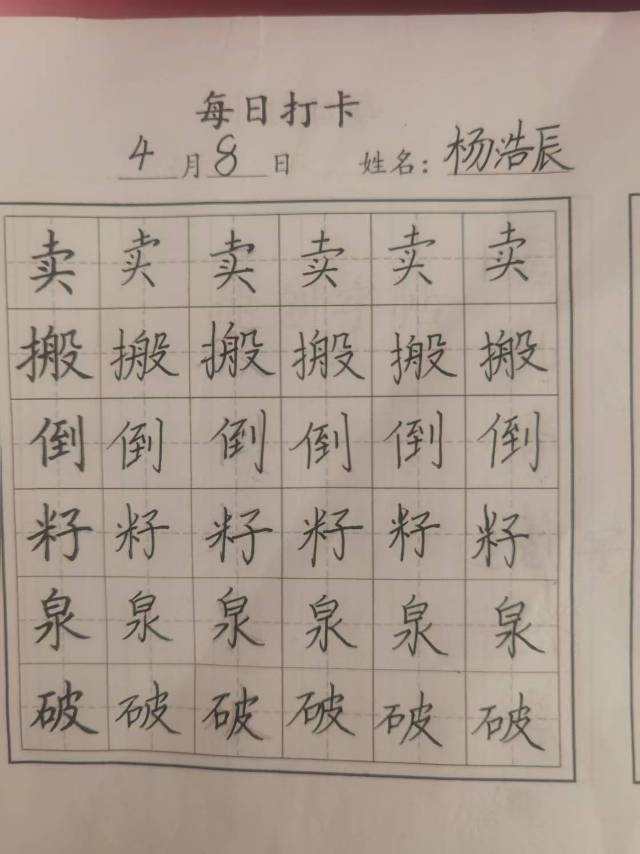 每日打卡
4月8日 姓名：杨浩辰
卖 卖 卖 卖 卖 卖
搬 搬 搬 搬 搬 搬
倒 倒 倒 倒 倒 倒
籽 籽 籽 籽 籽 籽
泉 泉 泉 泉 泉 泉
破 破 破 破 破 破